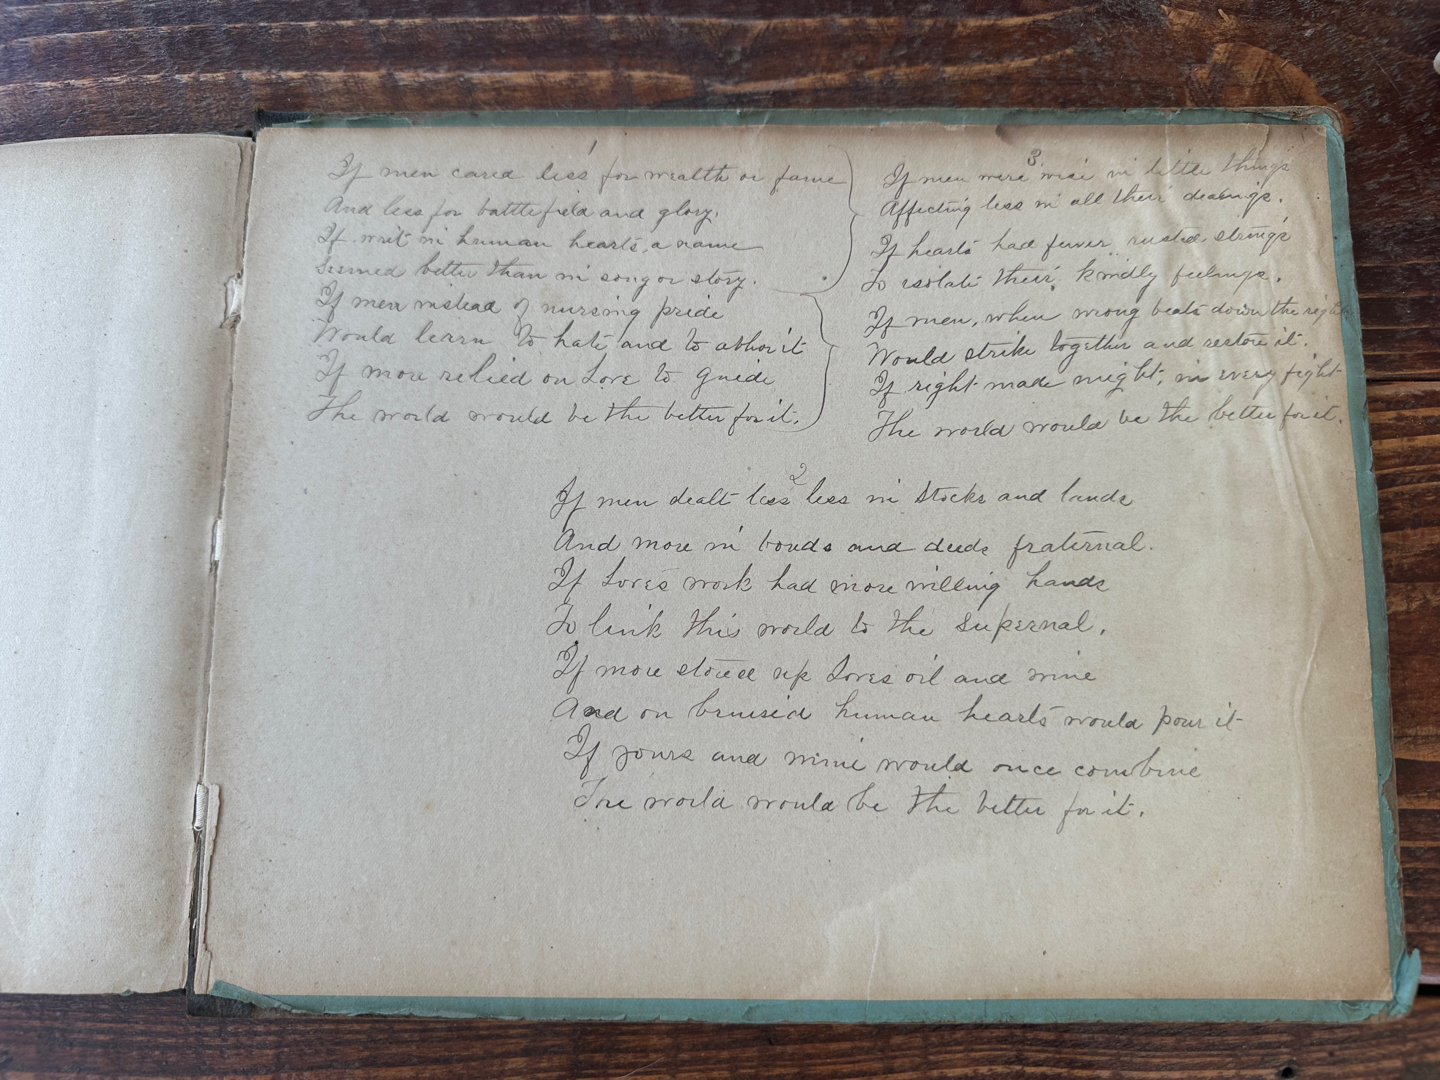 1
If men cared less for wealth or fame
And less for battlefield and glory.
If writ in human hearts, a name
Seemed better than in song or story.
If men instead of nursing pride
Would learn to hate and to abhor it
If more relied on Love to guide
The world would be the better for it.
2
If men dealt less less in Stocks and lands
And more in bonds and deeds fraternal.
If Love's work had more willing hands
To link this world to the supernal.
If more stored up Loves oil and wine
And on bruised human hearts would pour it
If yours and mine would once combine
The world would be the better for it.
3
If men were wise in little things
Affecting less in all their dealings.
If hearts had fewer rusted strings
To isolate their kindly feelings.
If men, when wrong beats down the right
Would strike together and restore it.
If right made might, in every fight
The world would be the better for it.